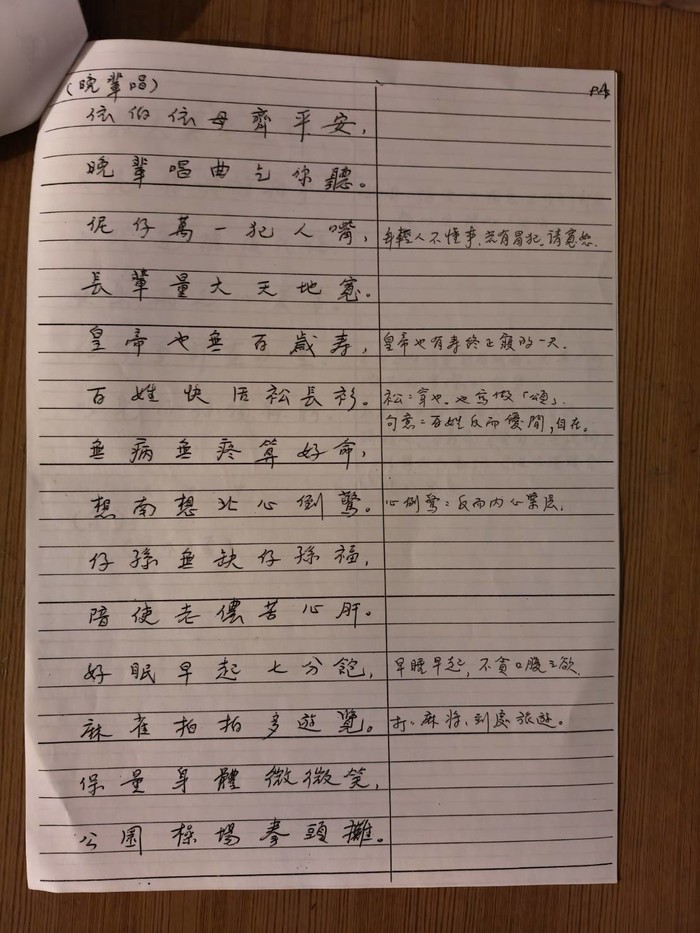 (晚輩唱)
P4
依伯依母齊平安，
晚輩唱曲乞你聽。
伲仔萬一犯人嘴，
年輕人不懂事，若有冒犯，请寬恕.
長輩量大天地寬。
皇帝也無百歲寿，
皇帝也有寿终正寢的一天.
百姓快活衳長衫。
衳：穿也。也寫做「頌」.
句意：百姓反而優閒，自在。
無病無疼算好命，
想南想北心倒驚。
心倒驚：反而内心
仔孫無缺仔孫福，
陪使老儂苦心肝。
好眠早起七分飽，
早睡早起，不貪口腹之欲
麻雀拍拍多遊覽。
打打麻将，到處旅遊。
保量身體微微笑，
公園操場拳頭攤。